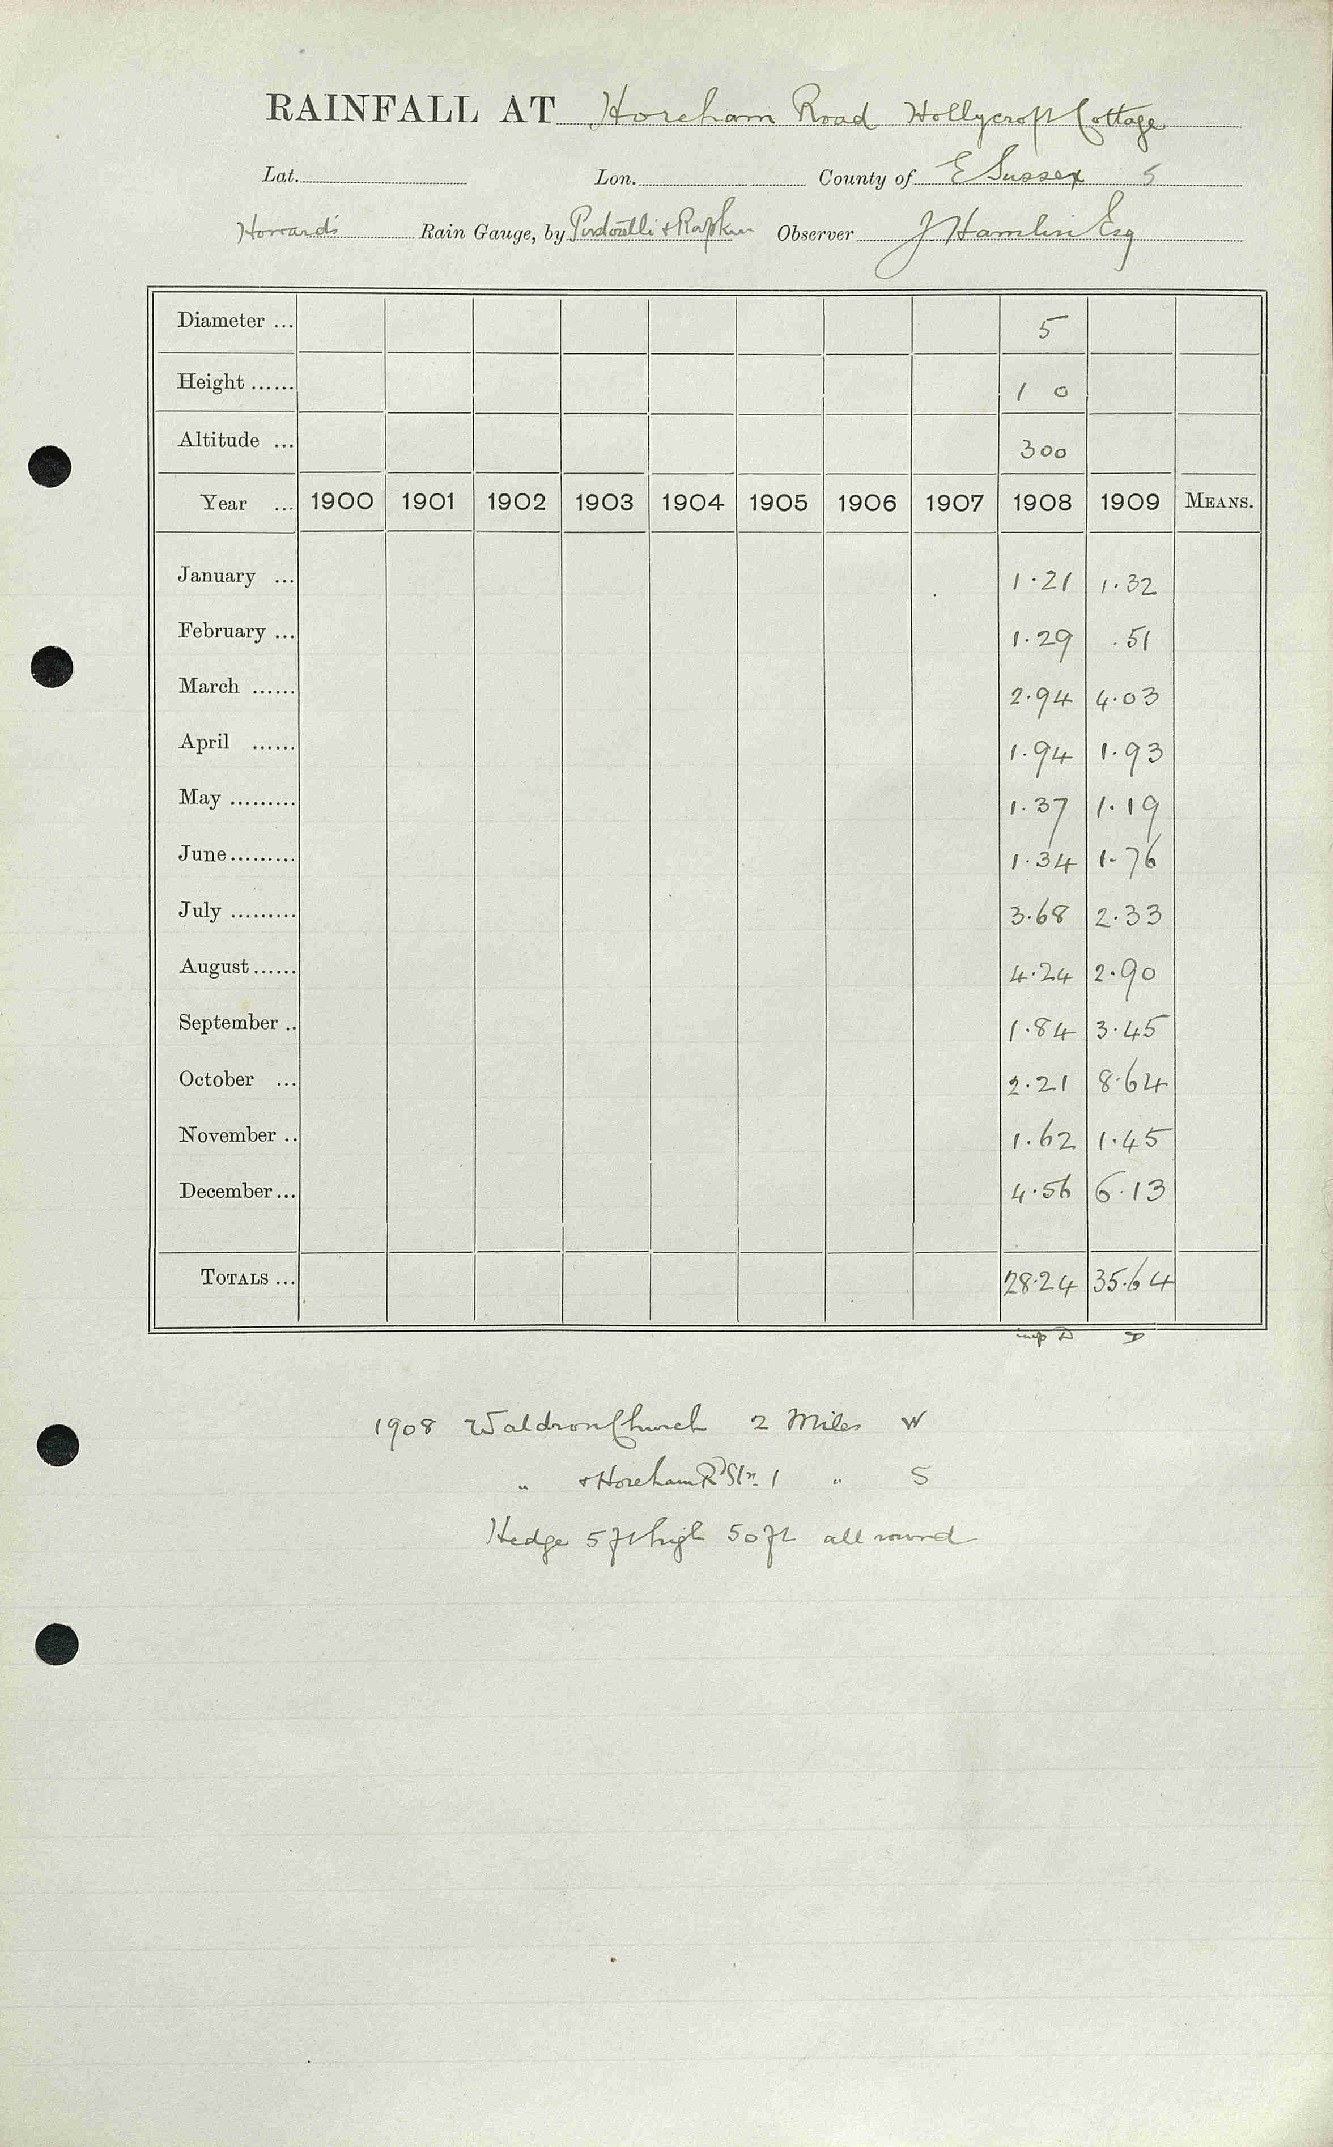 RAINFALL AT Horeham Road Hollycroft Cottage
Lat. Lon. County of E Sussex 5
Howard's Rain Gauge, by & Observer J Hamlin Esq
Diameter ... 5
Height ...... 1 0
Altitude ... 300
Year ... 1900 1901 1902 1903 1904 1905 1906 1907 1908 1909 MEANS.
January ... 1.21 1.32
February ... 1.29 .51
March ...... 2.94 4.03
April ...... 1.94 1.93
May ......... 1.37 1.19
June......... 1.34 1.76
July ......... 3.68 2.33
August...... 4.24 2.90
September .. 1.84 3.45
October ... 2.21 8.64
November .. 1.62 1.45
December... 4.56 6.13
TOTALS ... 28.24 35.64
D
1908 Waldron Church 2 Miles W
" & Horeham Rd Stn. 1 " S
Hedge 5 ft high 50 ft all round